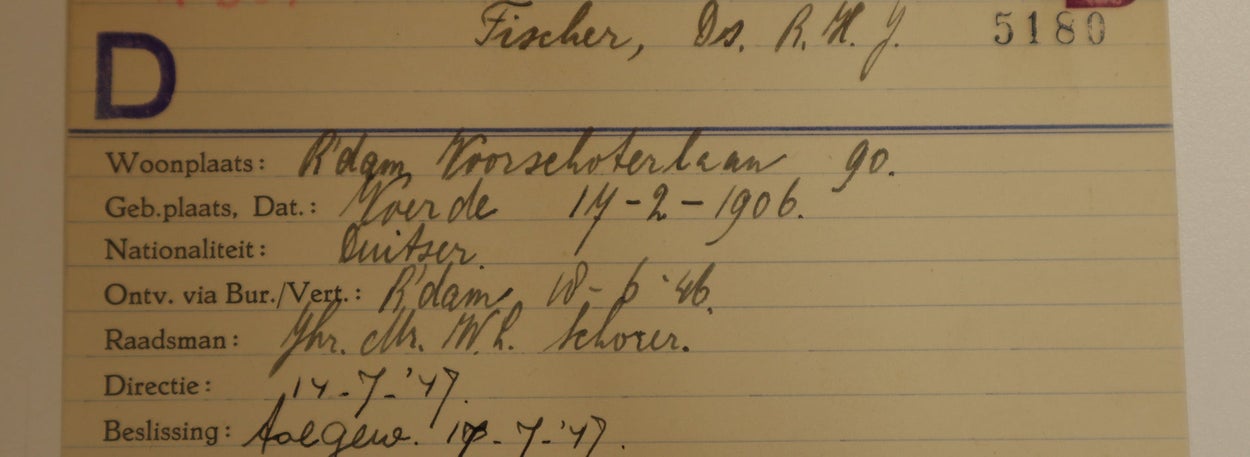 Fischer, Ds. R. H. J. 5180
D
Woonplaats: R'dam Voorschoterlaan 90.
Geb.plaats, Dat.: Voerde 17-2-1906.
Nationaliteit: Duitser.
Ontv. via Bur./Vert.: R'dam 18-6-'46.
Raadsman: Jhr. Mr. W.h. Schorer.
Directie: 14-7-'47.
Beslissing: Toegew. -7-'47.